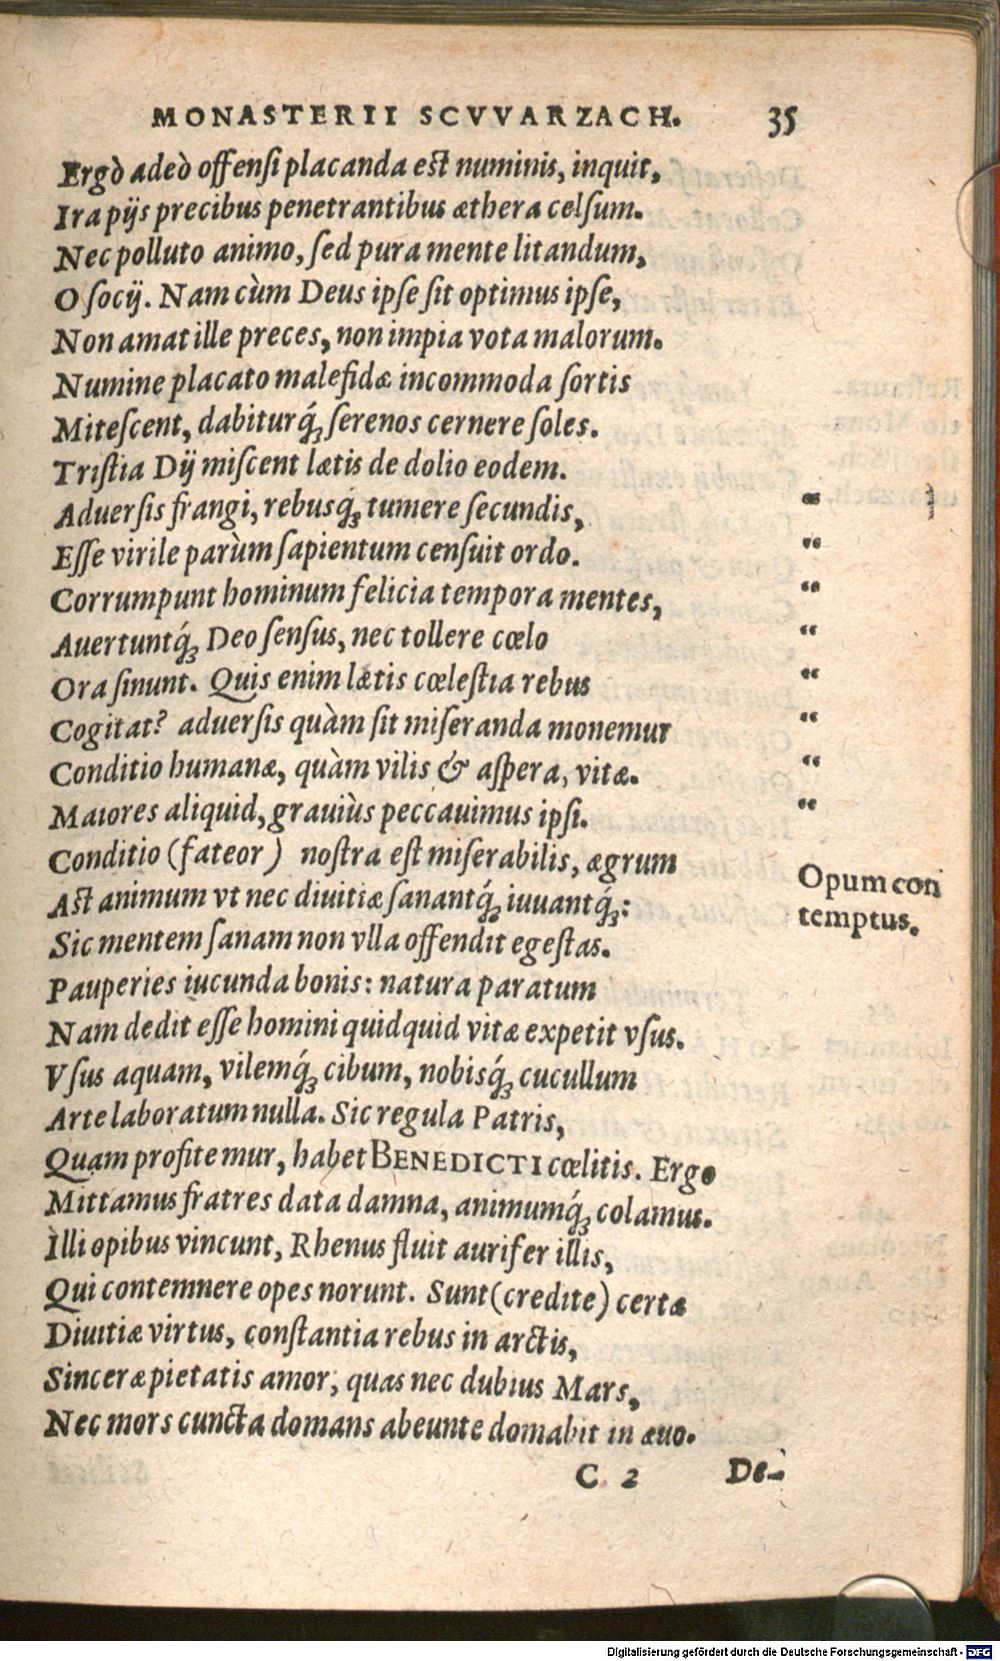 MONASTERII SCVVARZACH. 35
Ergò adeò offensi placanda est numinis, inquit,
Ira pijs precibus penetrantibus æthera celsum.
Nec polluto animo, sed pura mente litandum,
O socij. Nam cùm Deus ipse sit optimus ipse,
Non amat ille preces, non impia vota malorum.
Numine placato malefidæ incommoda sortis
Mitescent, dabiturq́ꝫ serenos cernere soles.
Tristia Dij miscent lætis de dolio eodem.
Aduersis frangi, rebusq́ꝫ tumere secundis, “
Esse virile parùm sapientum censuit ordo. “
Corrumpunt hominum felicia tempora mentes, “
Auertuntq́ꝫ Deo sensus, nec tollere cœlo “
Ora sinunt. Quis enim lætis cœlestia rebus “
Cogitat? aduersis quàm sit miseranda monemur “
Conditio humanæ, quàm vilis & aspera, vitæ. “
Maiores aliquid, grauiùs peccauimus ipsi. “
Conditio (fateor) nostra est miserabilis, ægrum
Ast animum vt nec diuitiæ sanantq́ꝫ iuuantq́ꝫ:
Sic mentem sanam non vlla offendit egestas.
Pauperies iucunda bonis: natura paratum
Nam dedit esse homini quidquid vitæ expetit vsus.
Vsus aquam, vilemq́ꝫ cibum, nobisq́ꝫ cucullum
Arte laboratum nulla. Sic regula Patris,
Quam profitemur, habet BENEDICTI cœlitis. Ergo
Mittamus fratres data damna, animumq́ꝫ colamus.
Illi opibus vincunt, Rhenus fluit aurifer illis,
Qui contemnere opes norunt. Sunt (credite) certæ
Diuitiæ virtus, constantia rebus in arctis,
Sinceræ pietatis amor, quas nec dubius Mars,
Nec mors cuncta domans abeunte domabit in æuo.
C 2 De-
Opum con
temptus.
Digitalisierung gefördert durch die Deutsche Forschungsgemeinschaft - DFG